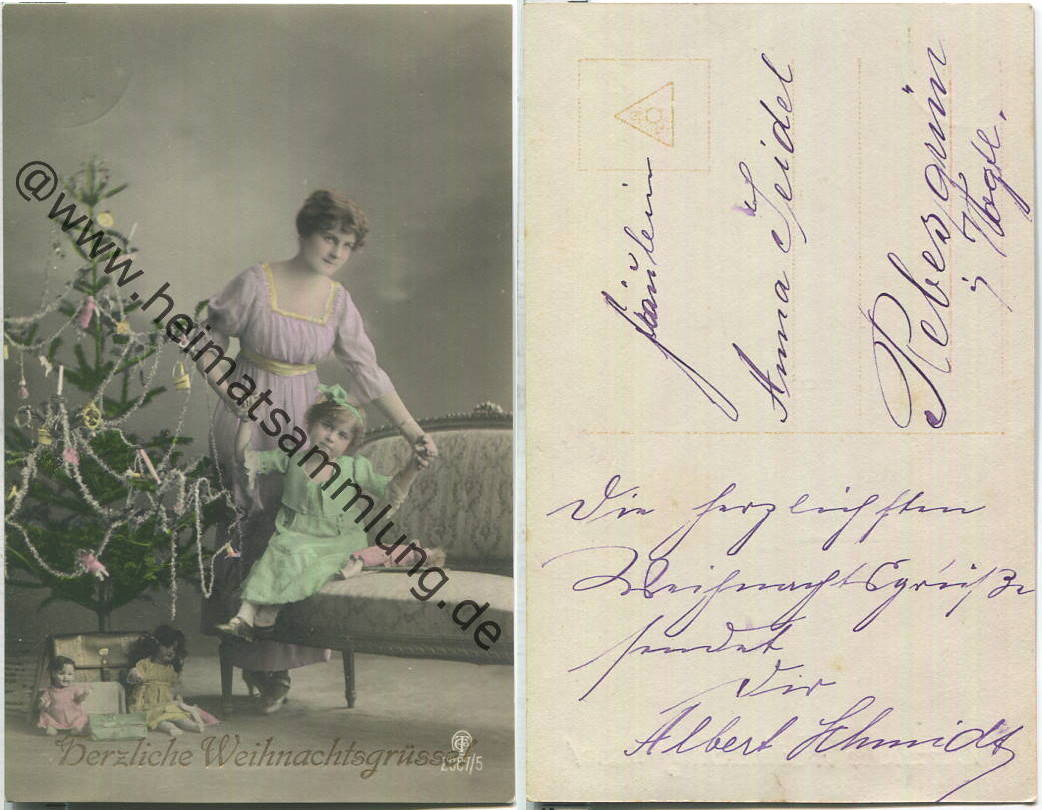 @www.heimatsammlung.de
Herzliche Weihnachtsgrüsse!
2987/5
Fräulein
Anna Seidel
Rebesgrün
i/ Vogtl.
Die herzlichsten
Weihnachtsgrüße
sendet
Dir
Albert Schmidt